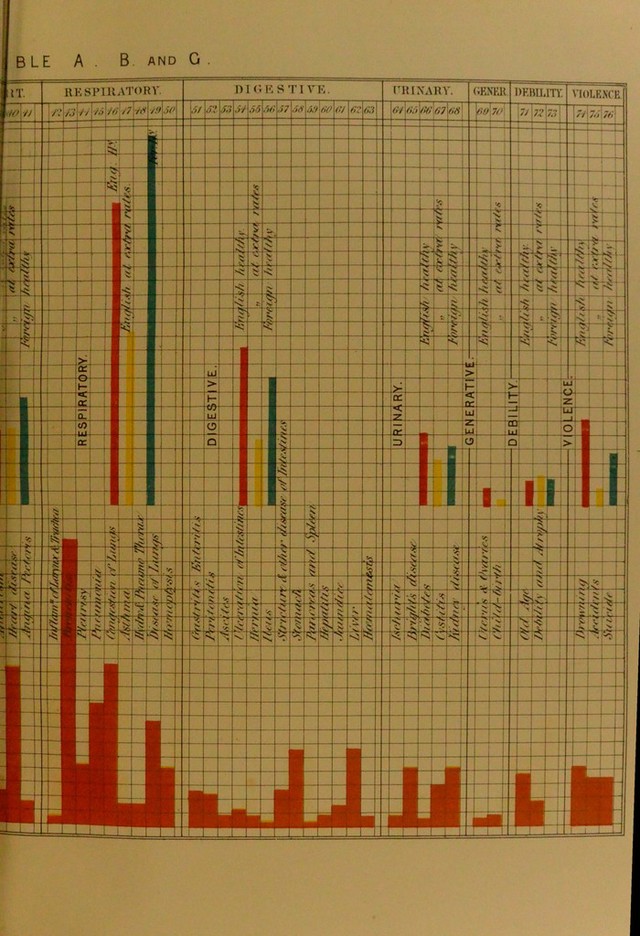 BLE A. B. AND G.
RT. RESPIRATORY. DIGESTIVE. URINARY. GENER. DEBILITY. VIOLENCE
40 41 42 43 44 45 46 47 48 49 50 51 52 53 54 55 56 57 58 59 60 61 62 63 64 65 66 67 68 69 70 71 72 73 74 75 76
at extra rates
Foreign healthy
RESPIRATORY.
Eng. Hy.
English at extra rates.
DIGESTIVE.
English healthy
„ at extra rates
Foreign healthy
URINARY.
English healthy
„ at extra rates
Foreign healthy
GENERATIVE.
English healthy
„ at extra rates
DEBILITY.
English healthy
„ at extra rates
Foreign healthy
VIOLENCE.
English healthy
„ at extra rates
Foreign healthy
Heart disease
Angina Pectoris
Inflamn. of Larynx & Trachea
Pleurisy
Pneumonia
Congestion of Lungs
Asthma
Hydro & Pneumo Thorax
Disease of Lungs
Haemoptysis
Gastritis Enteritis
Peritonitis
Ascites
Ulceration of Intestines
Hernia
Ileus
Stricture & other disease of Intestines
Stomach
Pancreas and Spleen
Hepatitis
Jaundice
Liver
Haematemesis
Ischuria
Brights disease
Diabetes
Cystitis
Kidney disease
Uterus & Ovaries
Child-birth
Old Age
Debility and Atrophy
Drowning
Accidents
Suicide